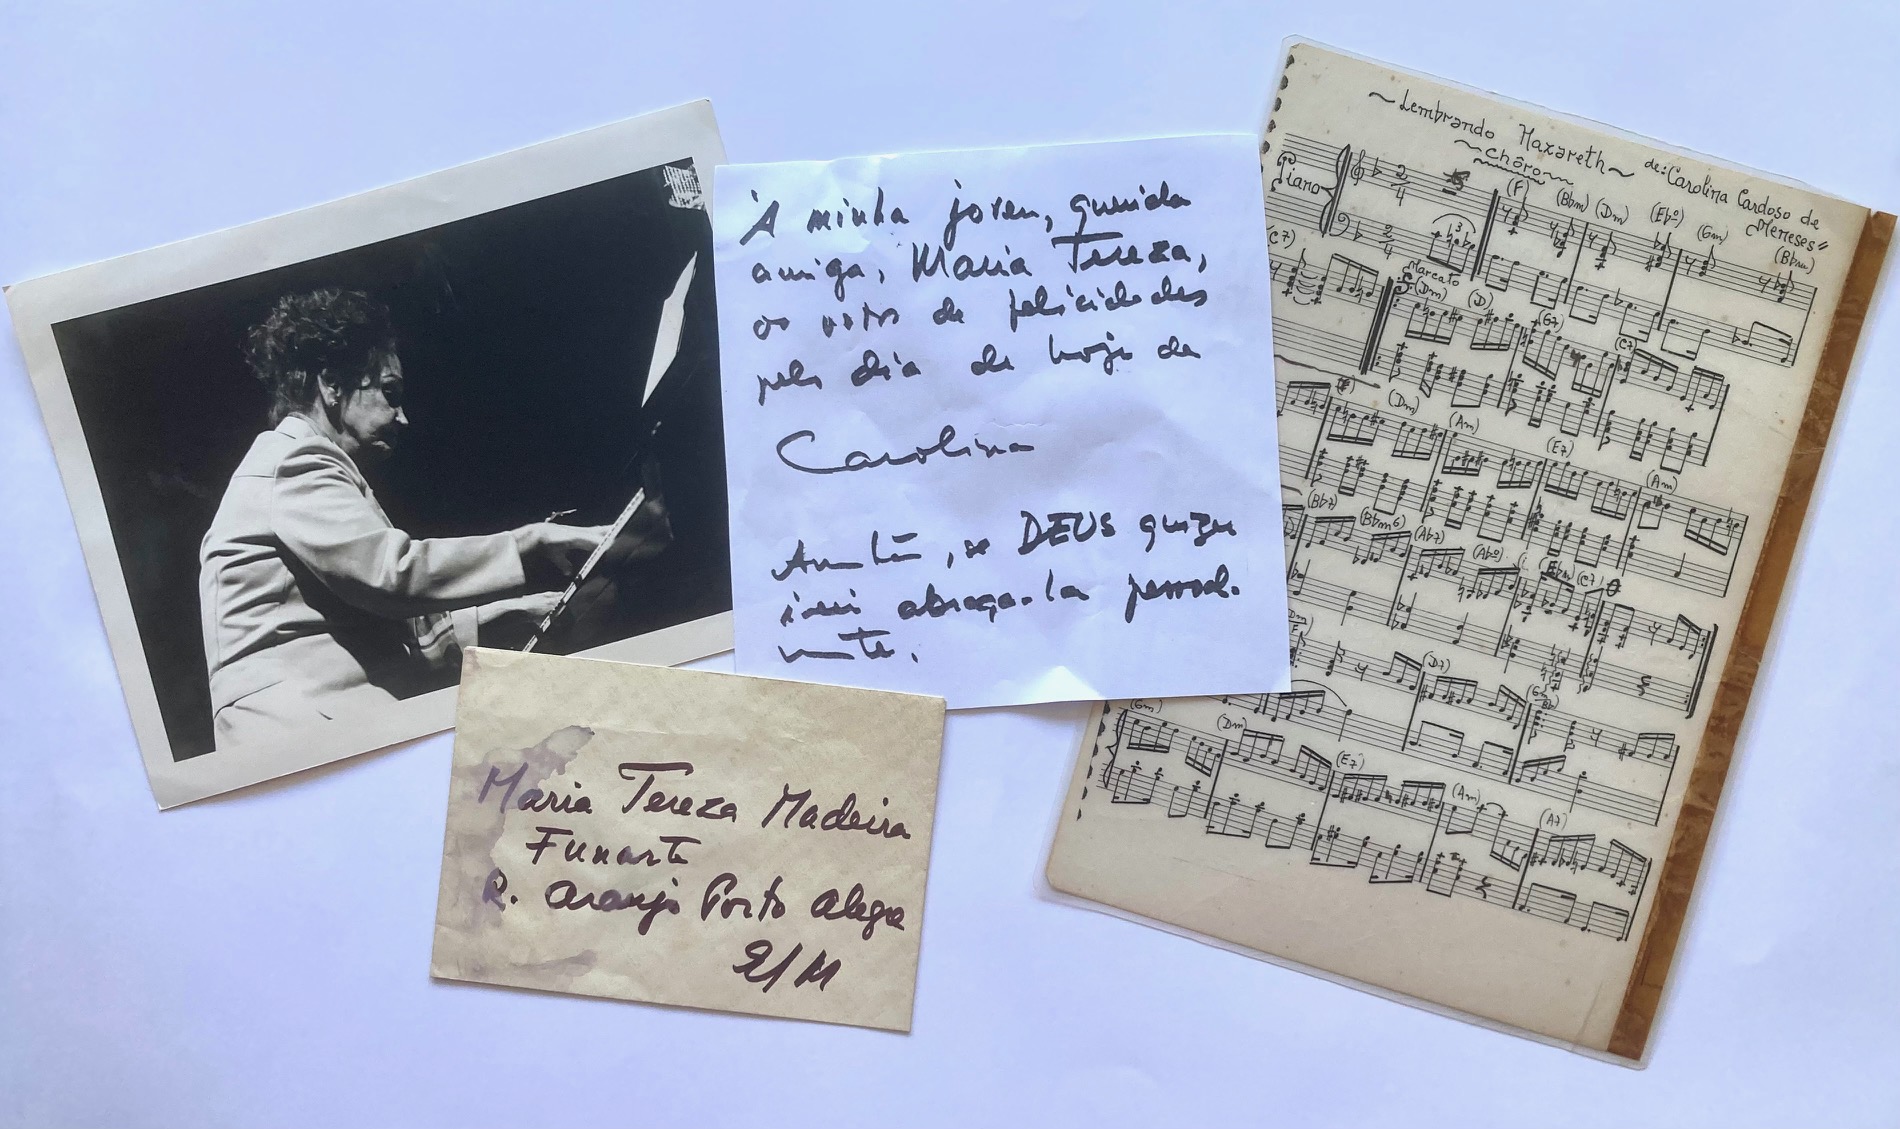 À minha jovem, querida
amiga, Maria Tereza,
os votos de felicidades
pelo dia de hoje da
Carolina
Amanhã, se DEUS quizer
irei abraça-la pessoal-
mente.
Maria Tereza Madeira
Funarte
R. Araujo Porto Alegre
E/M
~Lembrando Nazareth~ de: Carolina Cardoso de
~Chôro~ Meneses"
Piano
(F) (Bbm) (Dm) (Eb°) (Gm) (Bbm)
(C7) Marcato
(Dm) (D) (G7) (C7)
(Dm) (Am) (E7) (Am)
(Bb7) (Bbm6) (Ab7) (Ab°) (C7)
(D7) Gm
(Gm) (Dm) (E7) (Am) (A7)